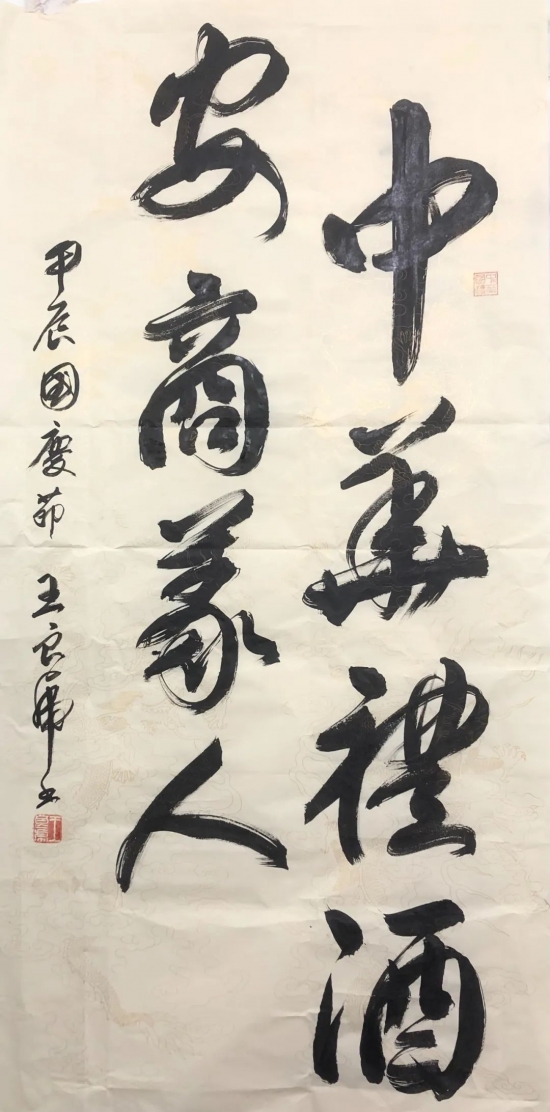 中華禮酒
安商義人
甲辰國慶節 王良虎书